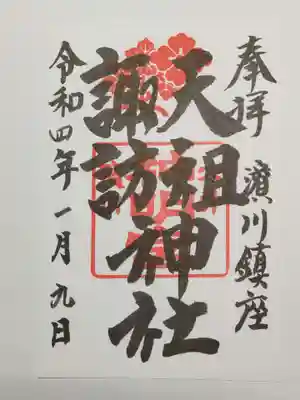 奉拝
濱川鎮座
天祖神社
諏訪
令和四年一月九日